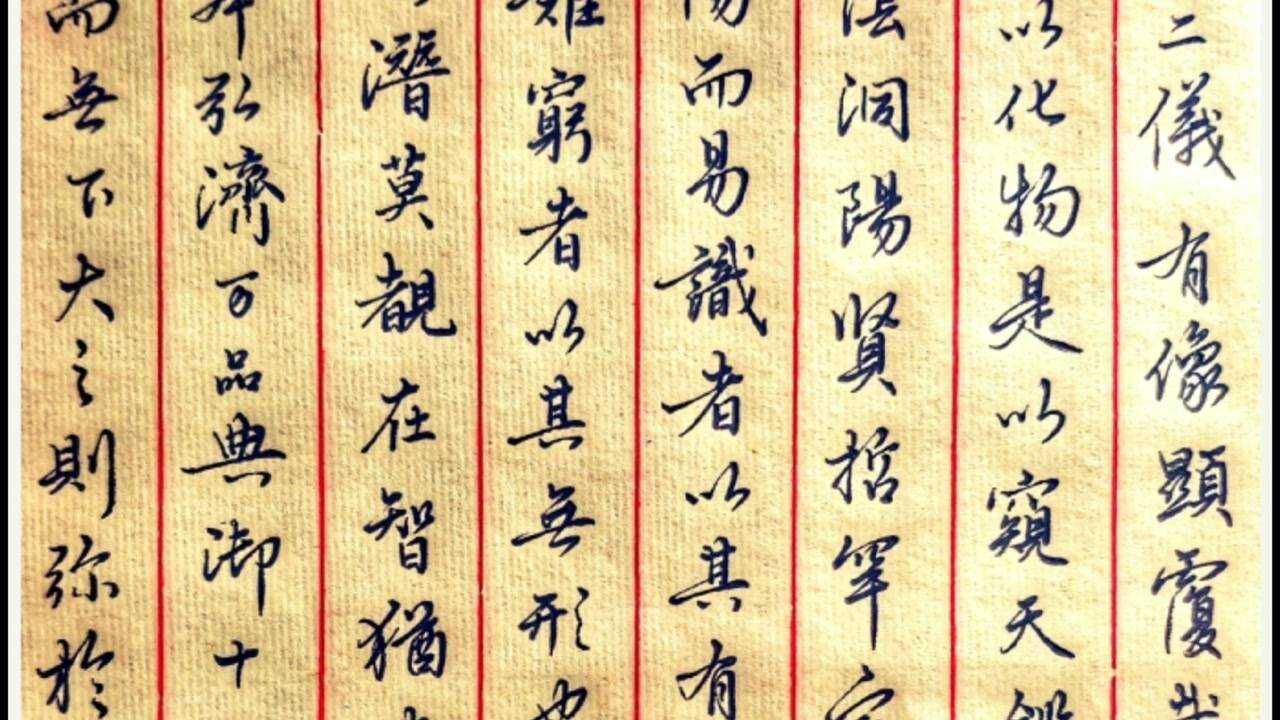 二儀有像顯覆
以化物是以窺天
洞陽賢哲罕
而易識者以其有
窮者以其無形也
潛莫覩在智猶
弘濟万品典御十
而無下大之則弥於